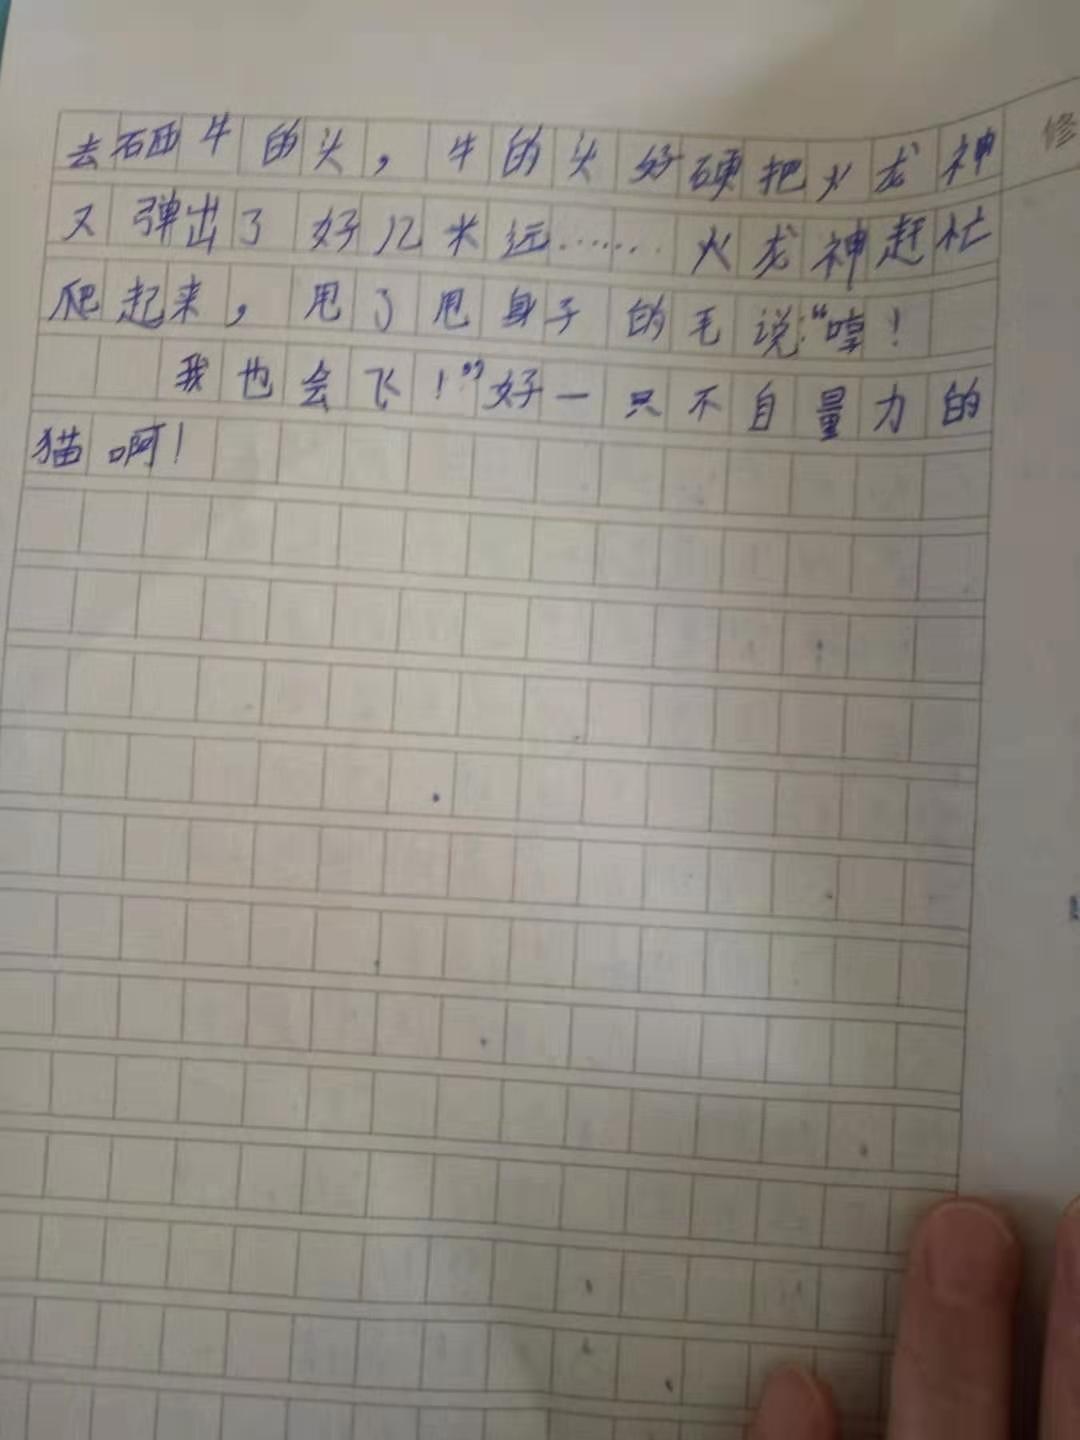 去硒牛的头，牛的头好硬把火龙神
修
又弹出了好几米远……火龙神赶忙
爬起来，甩了甩身子的毛说：“嘞！
我也会飞！”好一只不自量力的
猫啊！